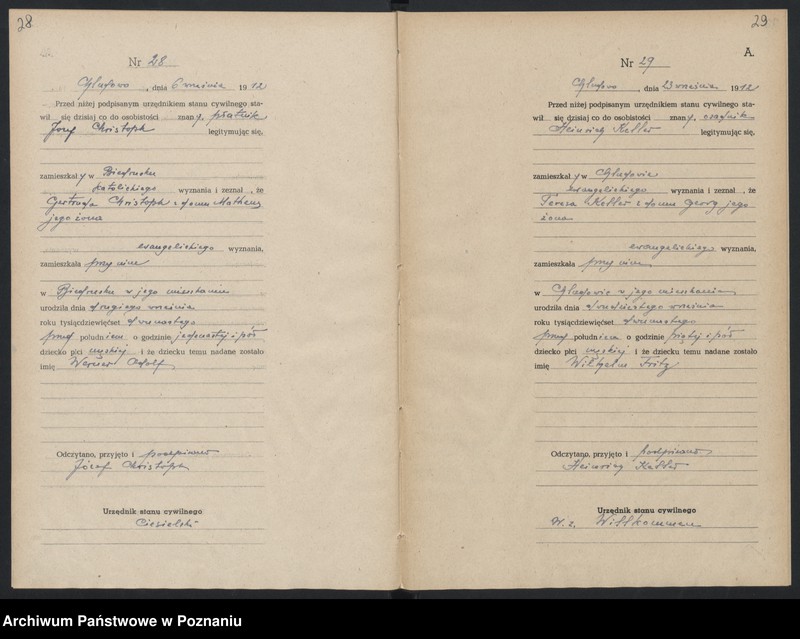 28
Nr 28
, dnia 6 września 1912
Przed niżej podpisanym urzędnikiem stanu cywilnego sta-
wił się dzisiaj co do osobistości znany,
Josef Christoph legitymując się,
zamieszkały w Biedrusku
katolickiego wyznania i zeznał, że
Gertruda Christoph z domu
jego żona
ewangelickiego wyznania,
zamieszkała przy nim
w Biedrusku w jego mieszkaniu
urodziła dnia drugiego września
roku tysiącdziewięćset dwunastego
przed południem o godzinie jedenastej i pół
dziecko płci męskiej i że dziecku temu nadane zostało
imię Werner Adolf
Odczytano, przyjęto i podpisano
Józef Christoph
Urzędnik stanu cywilnego
Ciesielski
29
A.
Nr 29
, dnia 23 września 1912
Przed niżej podpisanym urzędnikiem stanu cywilnego sta-
wił się dzisiaj co do osobistości znany,
Heinrich Keller legitymując się,
zamieszkały w
ewangelickiego wyznania i zeznał, że
Teresa Keller z domu Georg jego
żona
ewangelickiego wyznania,
zamieszkała przy nim
w w jego mieszkaniu
urodziła dnia dwudziestego września
roku tysiącdziewięćset dwunastego
przed południem o godzinie piątej i pół
dziecko płci męskiej i że dziecku temu nadane zostało
imię Wilhelm Fritz
Odczytano, przyjęto i podpisano
Heinrich Keller
Urzędnik stanu cywilnego
W. z. Willkommen
Archiwum Państwowe w Poznaniu